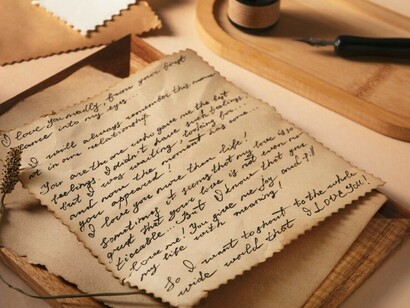 I love you madly from your first
glance into my eyes...
I will always remember this moment
in our relationship.
You are the one who gave me the best
feelings I didn't have such feelings
but I was waiting looking for...
and now the moment has come
you appeared!
I love you more than life!
Sometimes it seems that my love is so
great that your love is not even no
ticeable... But I know that you
love me! You give me joy and fill
my life with meaning!
So I want to shout to the whole
wide world that I LOVE YOU!